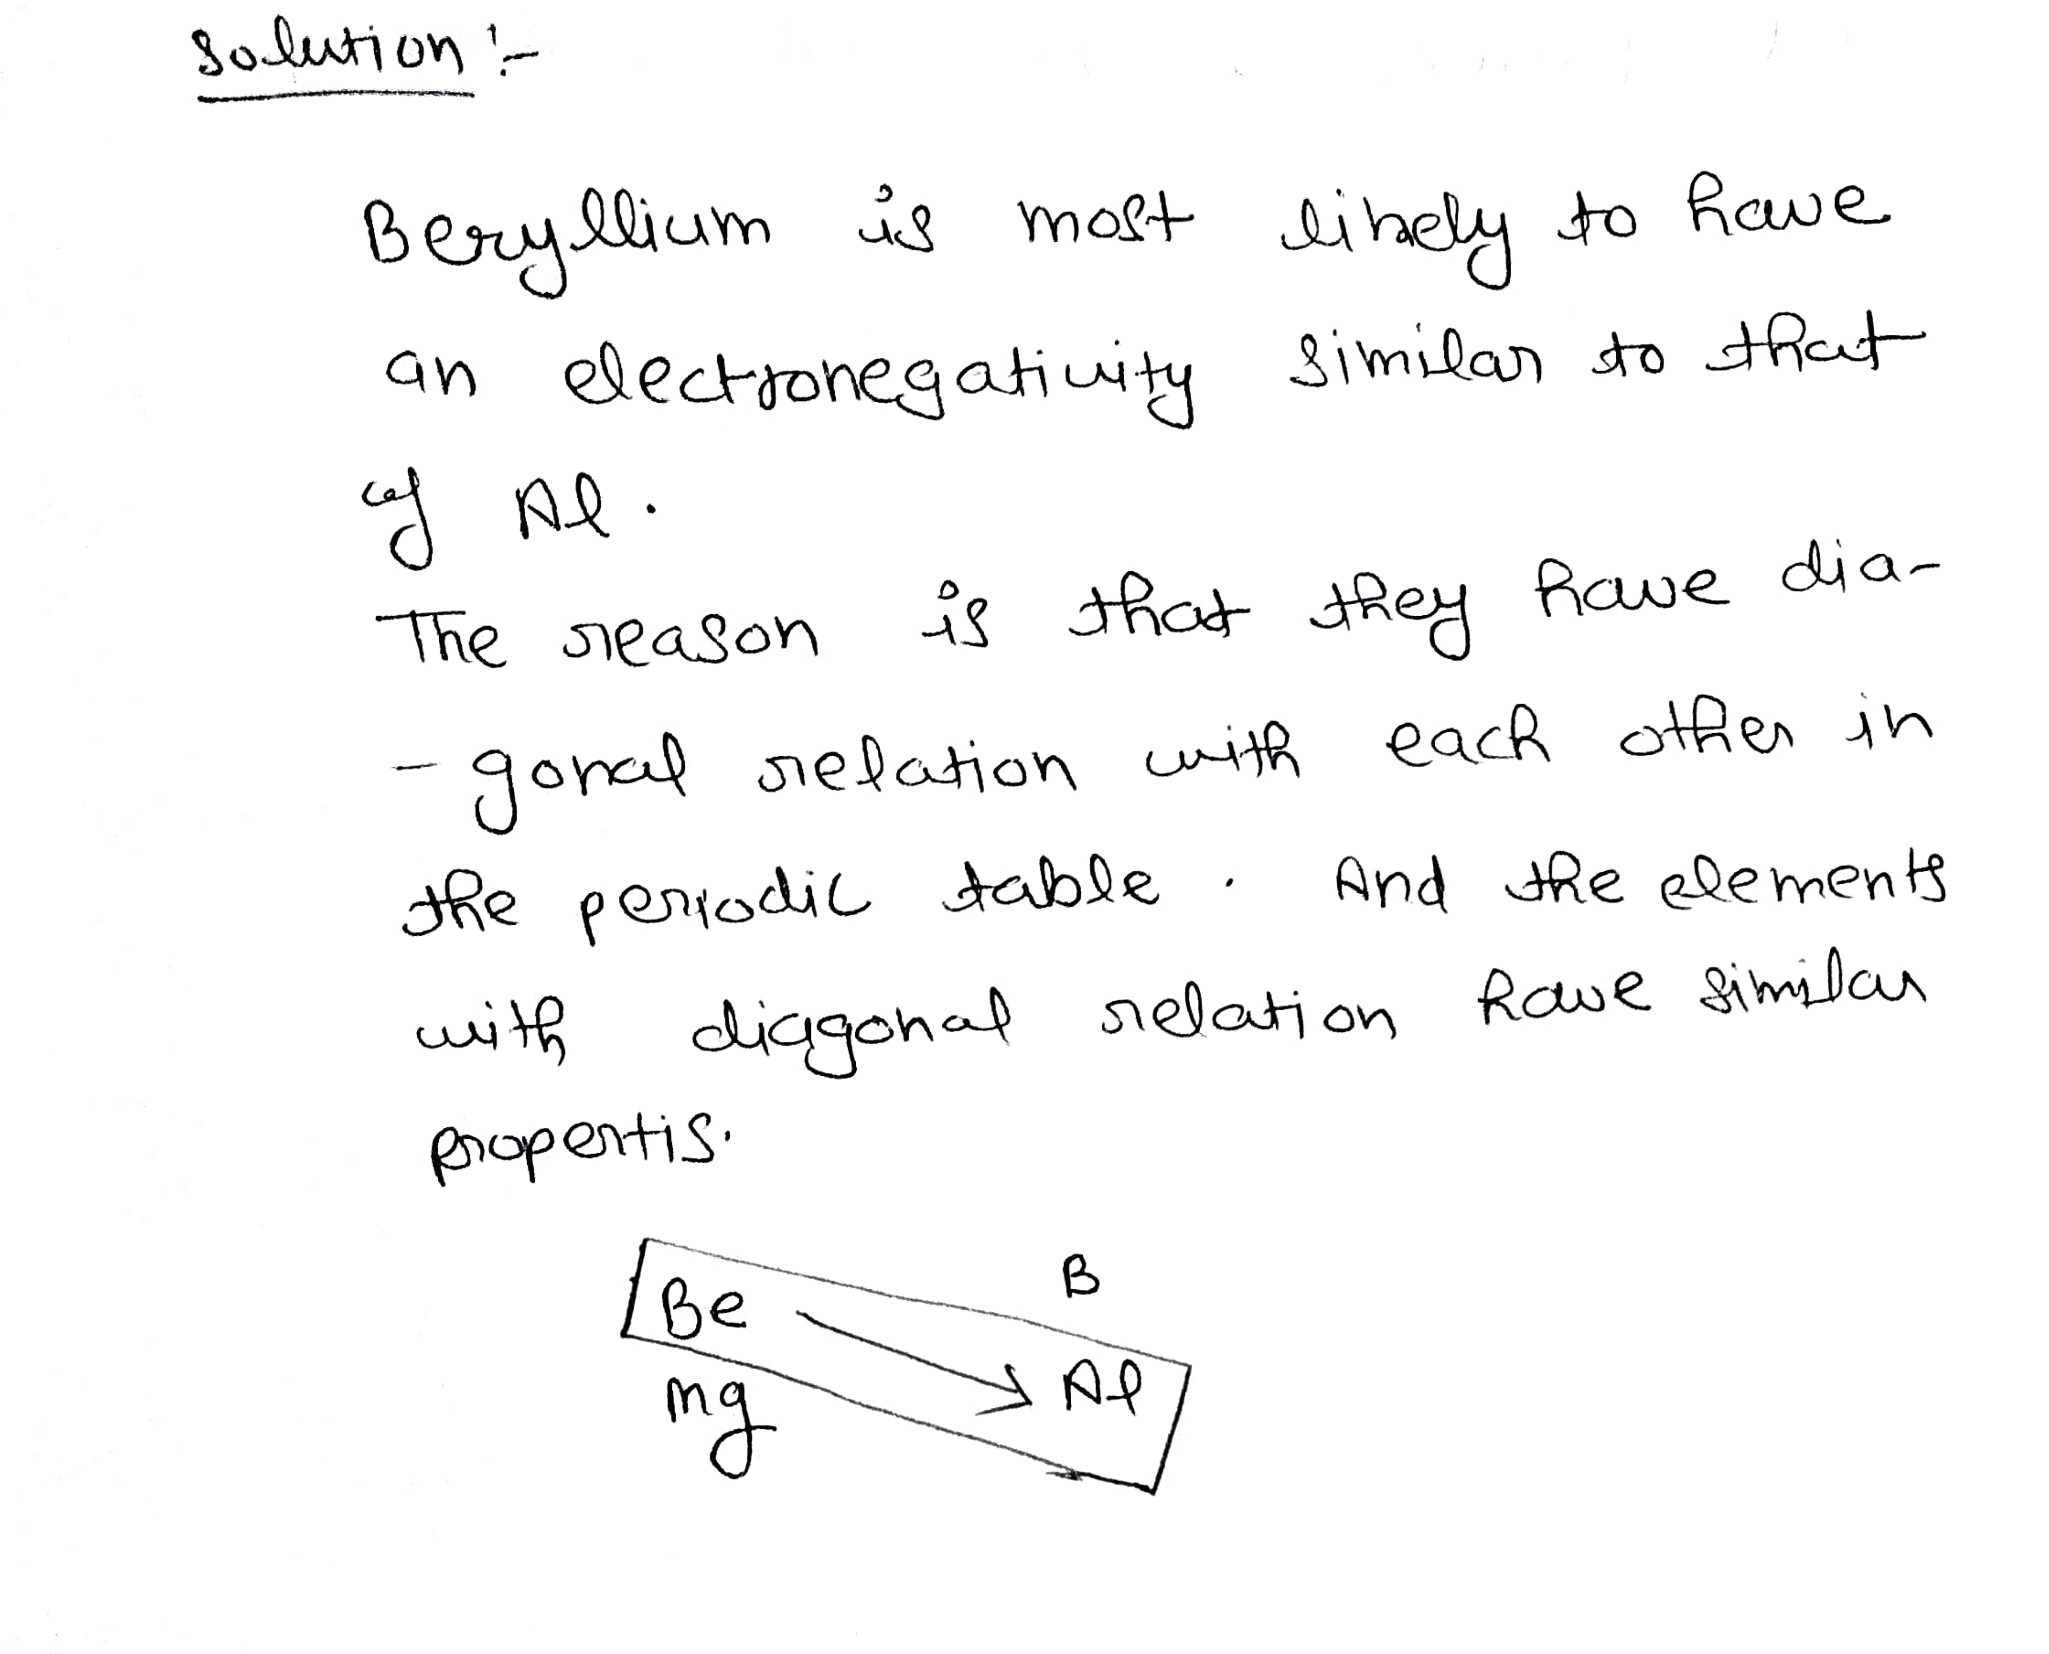 Solution :-
Beryllium is most likely to have
an electronegativity similar to that
of Al.
The reason is that they have dia-
-gonal relation with each other in
the periodic table. And the elements
with diagonal relation have similar
propertis.
Be B
Mg Al